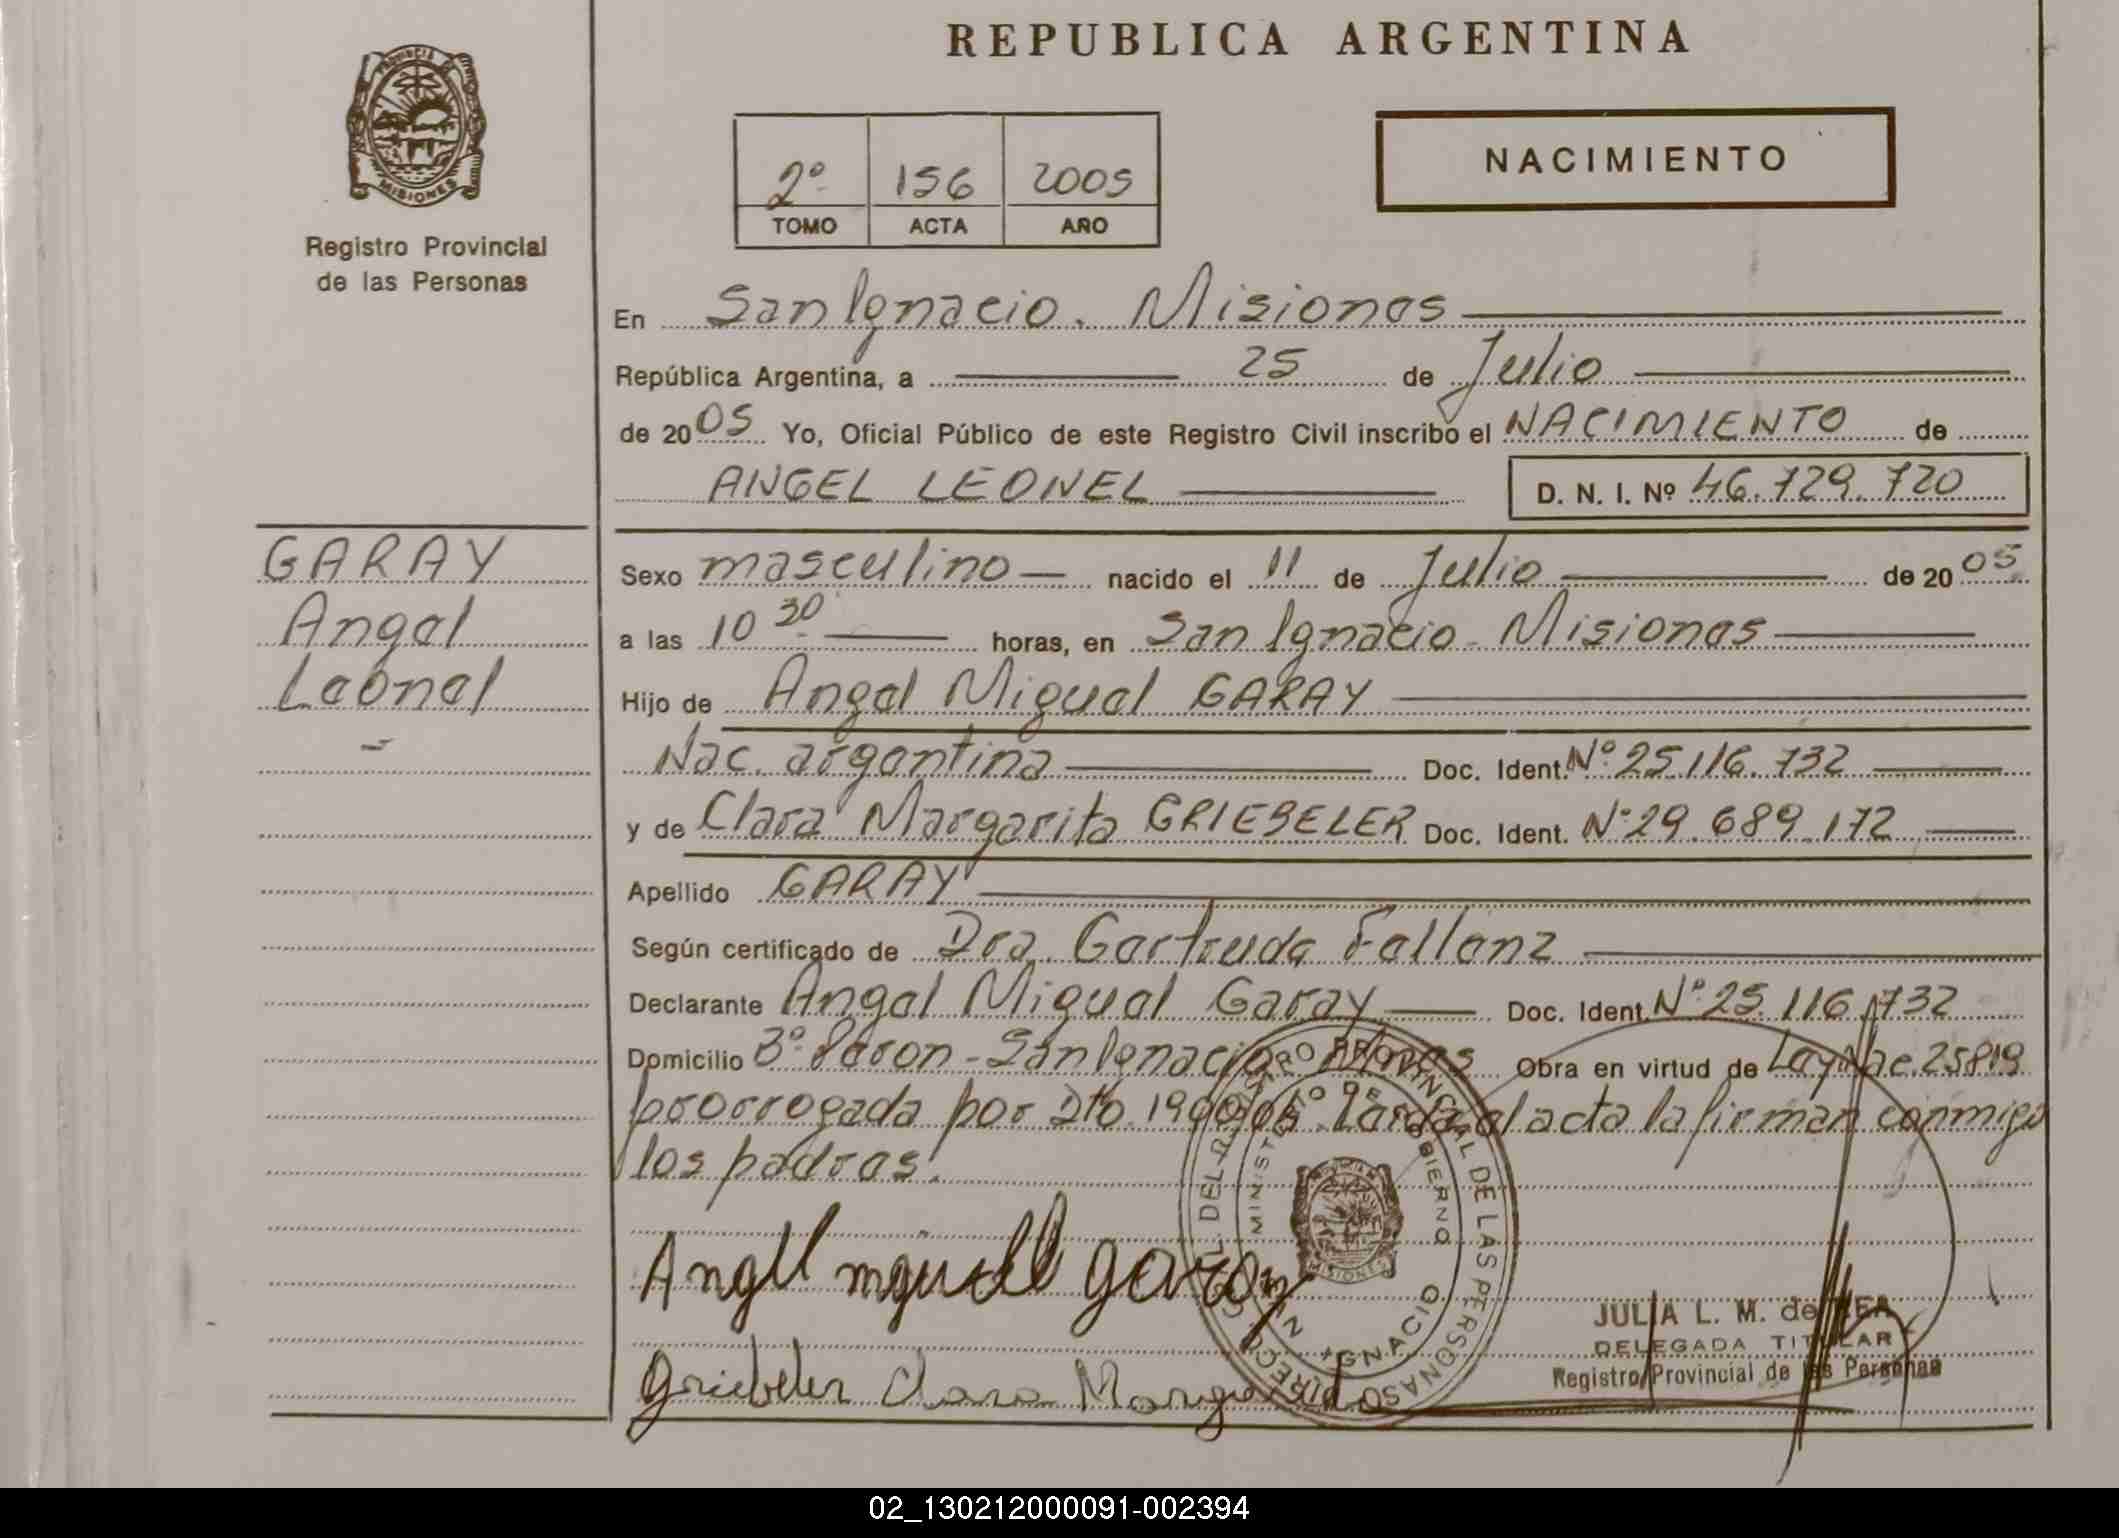 REPUBLICA ARGENTINA
PROVINCIA DE MISIONES
Registro Provincial
de las Personas
2º 156 2005
TOMO ACTA AÑO
NACIMIENTO
En San Ignacio. Misiones
República Argentina, a 25 de Julio
de 2005 Yo, Oficial Público de este Registro Civil inscribo el NACIMIENTO de
ANGEL LEONEL D. N. I. Nº 46.729.720
GARAY
Angel
Leonel
Sexo masculino nacido el 11 de Julio de 2005
a las 10 30 horas, en San Ignacio - Misiones
Hijo de Angel Miguel GARAY
Nac. argentina Doc. Ident. Nº 25.116.732
y de Clara Margarita GRIEBELER Doc. Ident. Nº 29.689.172
Apellido GARAY
Según certificado de Dra. Gertrude Fallenz
Declarante Angel Miguel Garay Doc. Ident. Nº 25.116.732
Domicilio Bº Peron - San Ignacio Mnes Obra en virtud de Ley Nac. 25819
prorrogada por Dto. el acta la firman conmigo
los padres.
Angel miguel garay
Griebeler Clara Margarita
DIRECC. GRAL. DEL REGISTRO PROVINCIAL DE LAS PERSONAS
MINISTERIO DE GOBIERNO
IGNACIO
MISIONES
JULIA L. M. de REA
DELEGADA TITULAR
Registro Provincial de las Personas
02_130212000091-002394